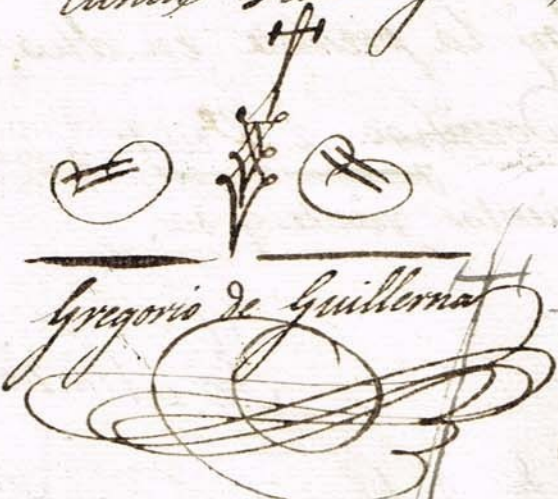 Gregorio de Guillerna